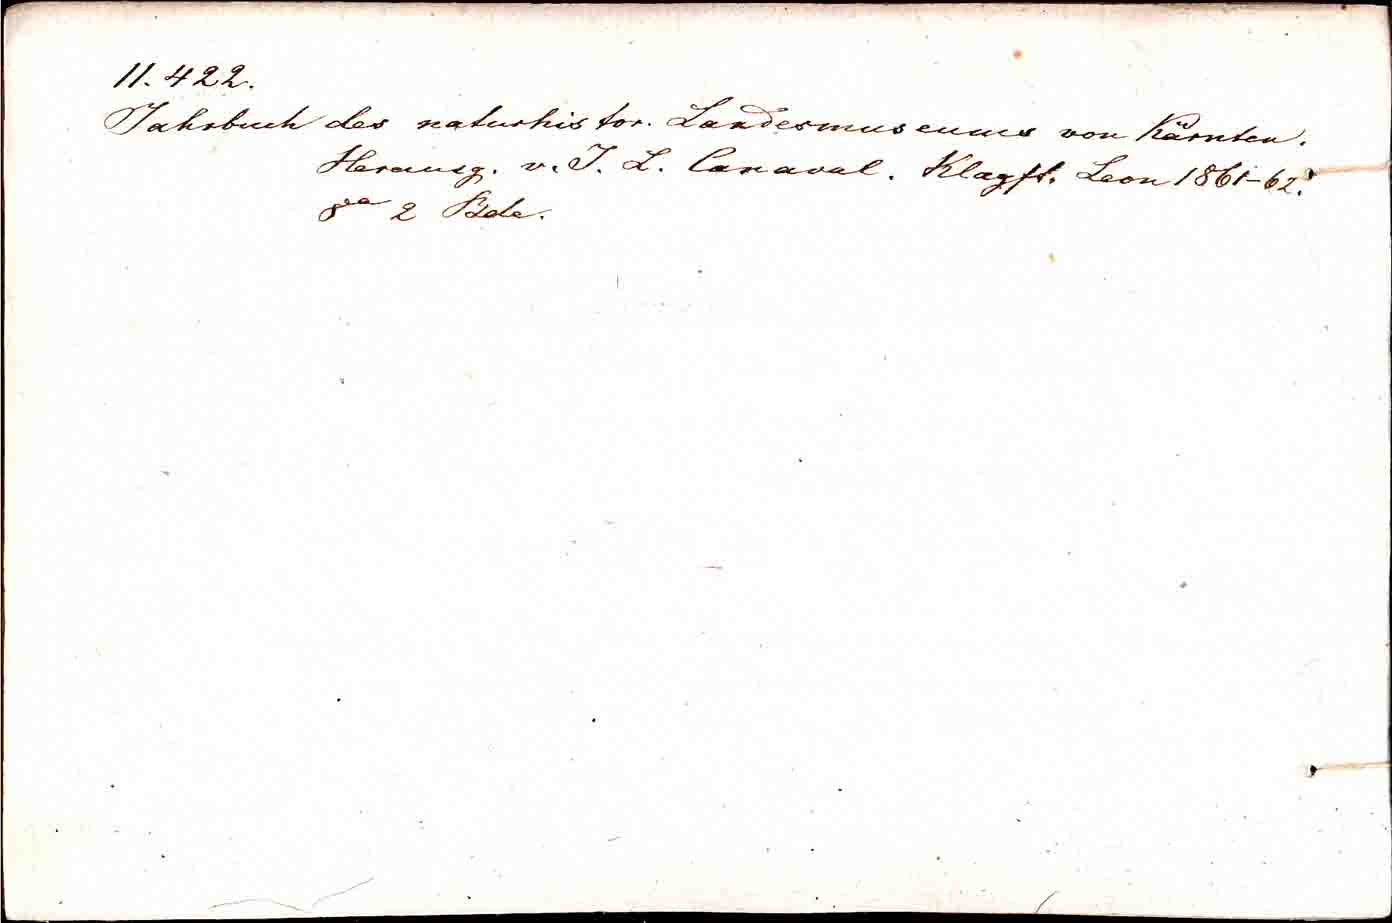 11.422.
Jahrbuch des naturhistor. Landesmuseums von Kärnten.
Herausg. v. J. L. Canaval. Klagft. Leon 1861-62.
8va 2 Bde.